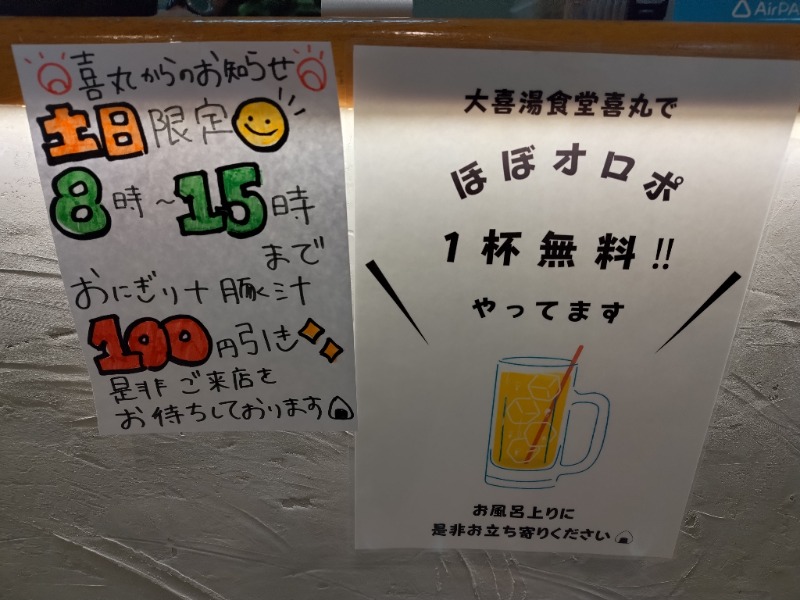 喜丸からのお知らせ
土日限定
8時~15時
まで
おにぎり+豚汁
100円引き
是非ご来店を
お待ちしております
大喜湯食堂喜丸で
ほぼオロポ
1杯無料!!
やってます
お風呂上りに
是非お立ち寄りください